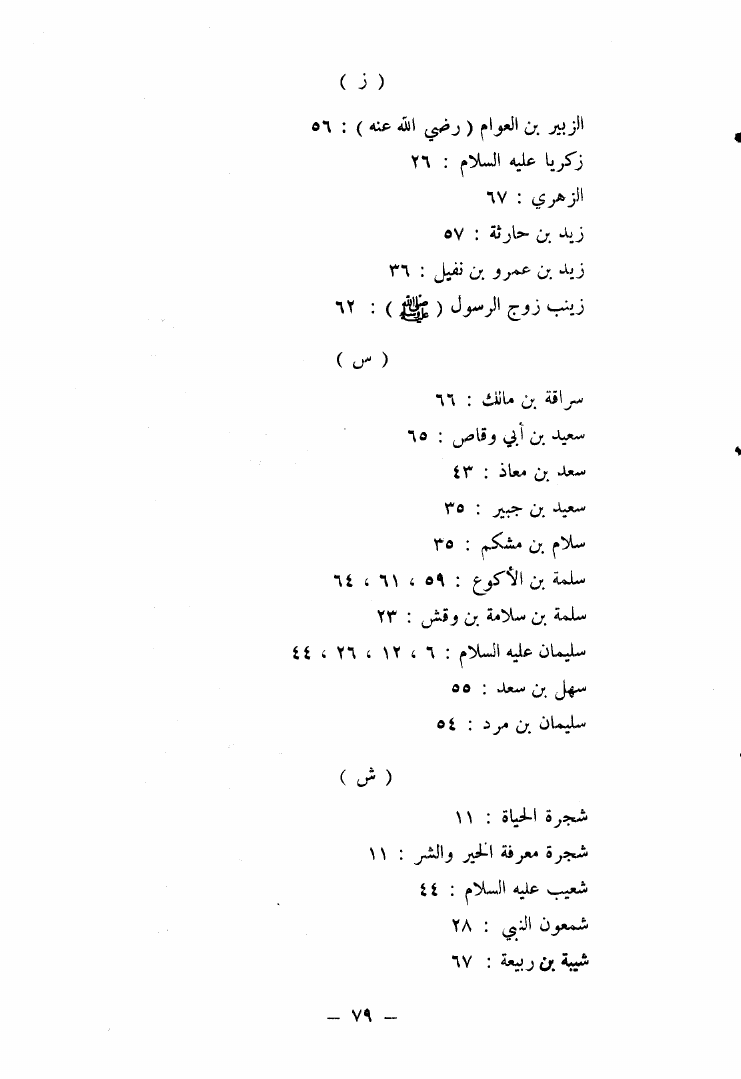 ( ز )
الزبير بن العوام ( رضي الله عنه ) : ٥٦
زكريا عليه السلام : ٢٦
الزهري : ٦٧
زيد بن حارثة : ٥٧
زيد بن عمرو بن نفيل : ٣٦
زينب زوج الرسول ( ﷺ ) : ٦٢
( س )
سراقة بن مالك : ٦٦
سعيد بن أبي وقاص : ٦٥
سعد بن معاذ : ٤٣
سعيد بن جبير : ٣٥
سلام بن مشكم : ٣٥
سلمة بن الأكوع : ٥٩ ، ٦١ ، ٦٤
سلمة بن سلامة بن وقش : ٢٣
سليمان عليه السلام : ٦ ، ١٢ ، ٢٦ ، ٤٤
سهل بن سعد : ٥٥
سليمان بن مرد : ٥٤
( ش )
شجرة الحياة : ١١
شجرة معرفة الخير والشر : ١١
شعيب عليه السلام : ٤٤
شمعون النبي : ٢٨
شيبة بن ربيعة : ٦٧
— ٧٩ —